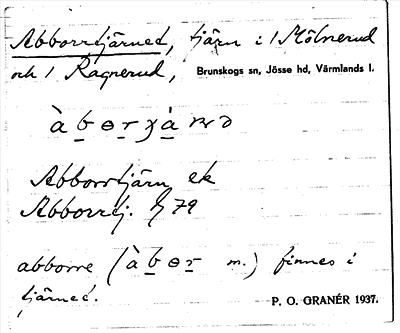 Abborrtjärnet, tjärn i 1 Mölnerud
och 1 Ragnerud, Brunskogs sn, Jösse hd, Värmlands l.
Abborrtjärn ek
Abborrtj. 79
abborre (àbɵr m.) finnes i
tjärnet.
P. O. GRANÉR 1937.